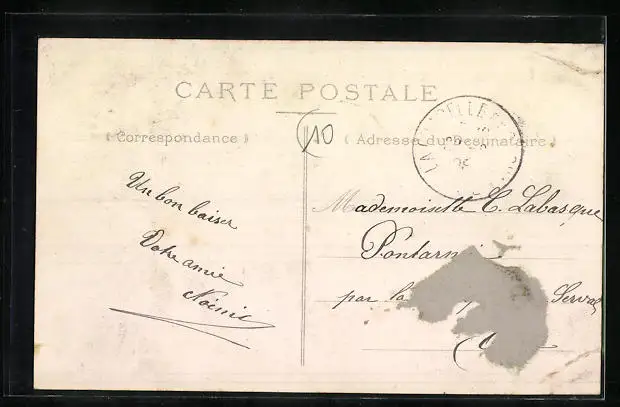 CARTE POSTALE
(Correspondance)
(Adresse du Destinataire)
10
Un bon baiser
Votre amie
Noémie
Mademoiselle C. Labasque
par la Serval